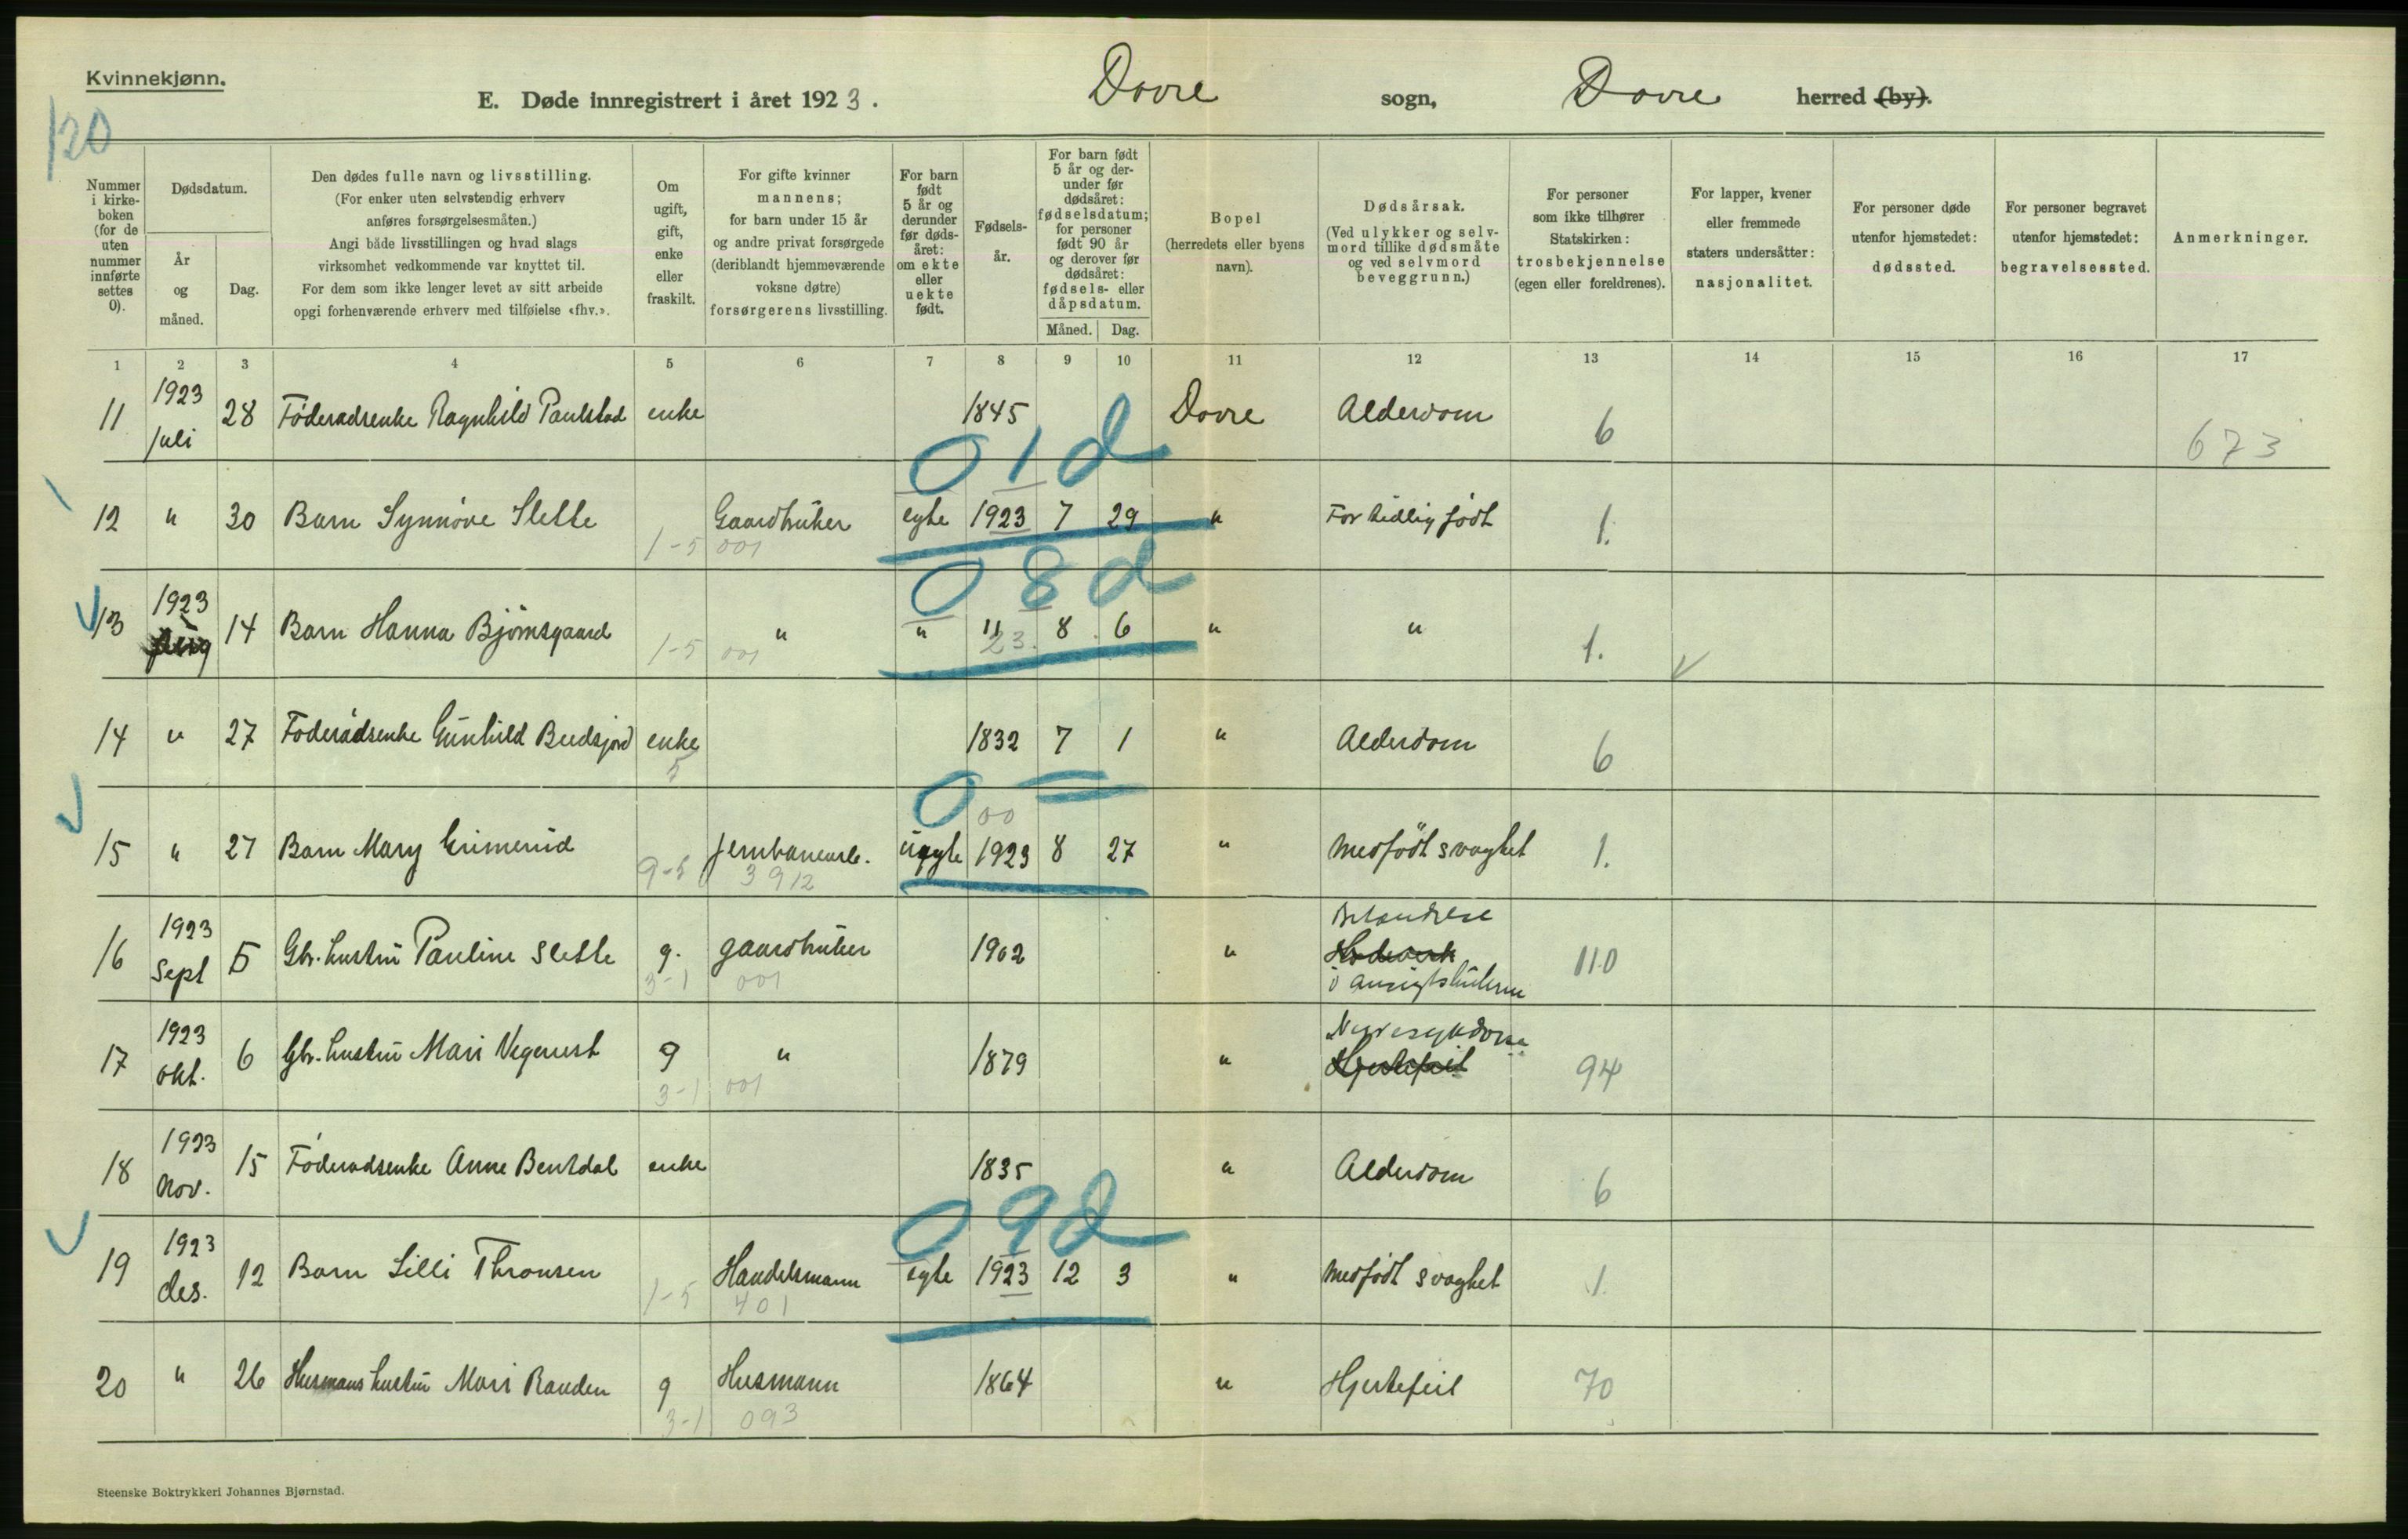 Kvinnekjønn.
E. Døde innregistrert i året 1923. Dovre sogn, Dovre herred (by).
120
Nummer i kirkeboken (for de uten nummer innførte settes 0).
Dødsdatum.
År og måned.
Dag.
Den dødes fulle navn og livsstilling.
(For enker uten selvstendig erhverv
anføres forsørgelsesmåten.)
Angi både livsstillingen og hvad slags
virksomhet vedkommende var knyttet til.
For dem som ikke lenger levet av sitt arbeide
opgi forhenværende erhverv med tilføielse «fhv.».
Om ugift, gift, enke eller fraskilt.
For gifte kvinner
mannens;
for barn under 15 år
og andre privat forsørgede
(deriblandt hjemmeværende
voksne døtre)
forsørgerens livsstilling.
For barn født 5 år og derunder før dødsåret: om ekte eller uekte født.
Fødselsår.
For barn født 5 år og derunder før dødsåret: fødselsdatum; for personer født 90 år og derover før dødsåret: fødsels- eller dåpsdatum.
Måned. Dag.
Bopel
(herredets eller byens
navn).
Dødsårsak.
(Ved ulykker og selvmord tillike dødsmåte
og ved selvmord
beveggrunn.)
For personer
som ikke tilhører
Statskirken:
trosbekjennelse
(egen eller foreldrenes).
For lapper, kvener
eller fremmede
staters undersåtter:
nasjonalitet.
For personer døde
utenfor hjemstedet:
dødssted.
For personer begravet
utenfor hjemstedet:
begravelsessted.
Anmerkninger.
1 2 3 4 5 6 7 8 9 10 11 12 13 14 15 16 17
11 1923 juli 28 Føderadsenke Ragnhild Paulstad enke 1845 Dovre Alderdom 6 673
0 1 d
12 " 30 Barn Synnøve Slette Gaardbruker egte 1923 7 29 " For tidlig født 1.
1-5 001
0 8 d
13 1923 aug 14 Barn Hanna Bjørnsgaard " " " 8 6 " " 1.
1-5 001 23.
14 " 27 Føderådsenke Gunhild Budsjord enke 1832 7 1 " Alderdom 6
5
0 00
15 " 27 Barn Mary Grimerud Jernbanearb. uegte 1923 8 27 " medfødt svaghet 1.
9-5 3912
16 1923 Sept 5 Gbr. hustru Pauline Slette g. gaardbruker 1902 " Betændelse Hodeverk i ansigtshulerne 110
3-1 001
17 1923 okt. 6 Gbr. hustru Mari Vegerust g " 1879 " Nyresykdom Hjertefeil 94
3-1 001
18 1923 Nov. 15 Føderadsenke Anne Bentdal enke 1835 " Alderdom 6
0 9 d
19 1923 des. 12 Barn Lilli Thronsen Handelsmann egte 1923 12 3 " medfødt svaghet 1.
1-5 401
20 " 26 Husmans hustru Mari Randen g Husmann 1864 " Hjertefeil 70
3-1 093
Steenske Boktrykkeri Johannes Bjørnstad.